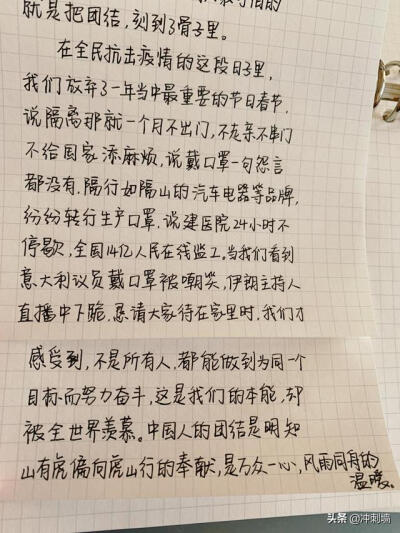 就是把团结,刻到了骨子里。
在全民抗击疫情的这段日子里,
我们放弃了一年当中最重要的节日春节,
说隔离那就一个月不出门,不走亲不串门
不给国家添麻烦,说戴口罩一句怨言
都没有,隔行如隔山的汽车电器等品牌,
纷纷转行生产口罩,说建医院24小时不
停歇,全国14亿人民在线监工。当我们看到
意大利议员戴口罩被嘲笑,伊朗主持人
直播中下跪,恳请大家待在家里时,我们才
感受到,不是所有人,都能做到为同一个
目标而努力奋斗,这是我们的本能,却
被全世界羡慕。中国人的团结是明知
山有虎偏向虎山行的奉献,是万众一心,风雨同舟的
温暖。
头条@冲刺墙